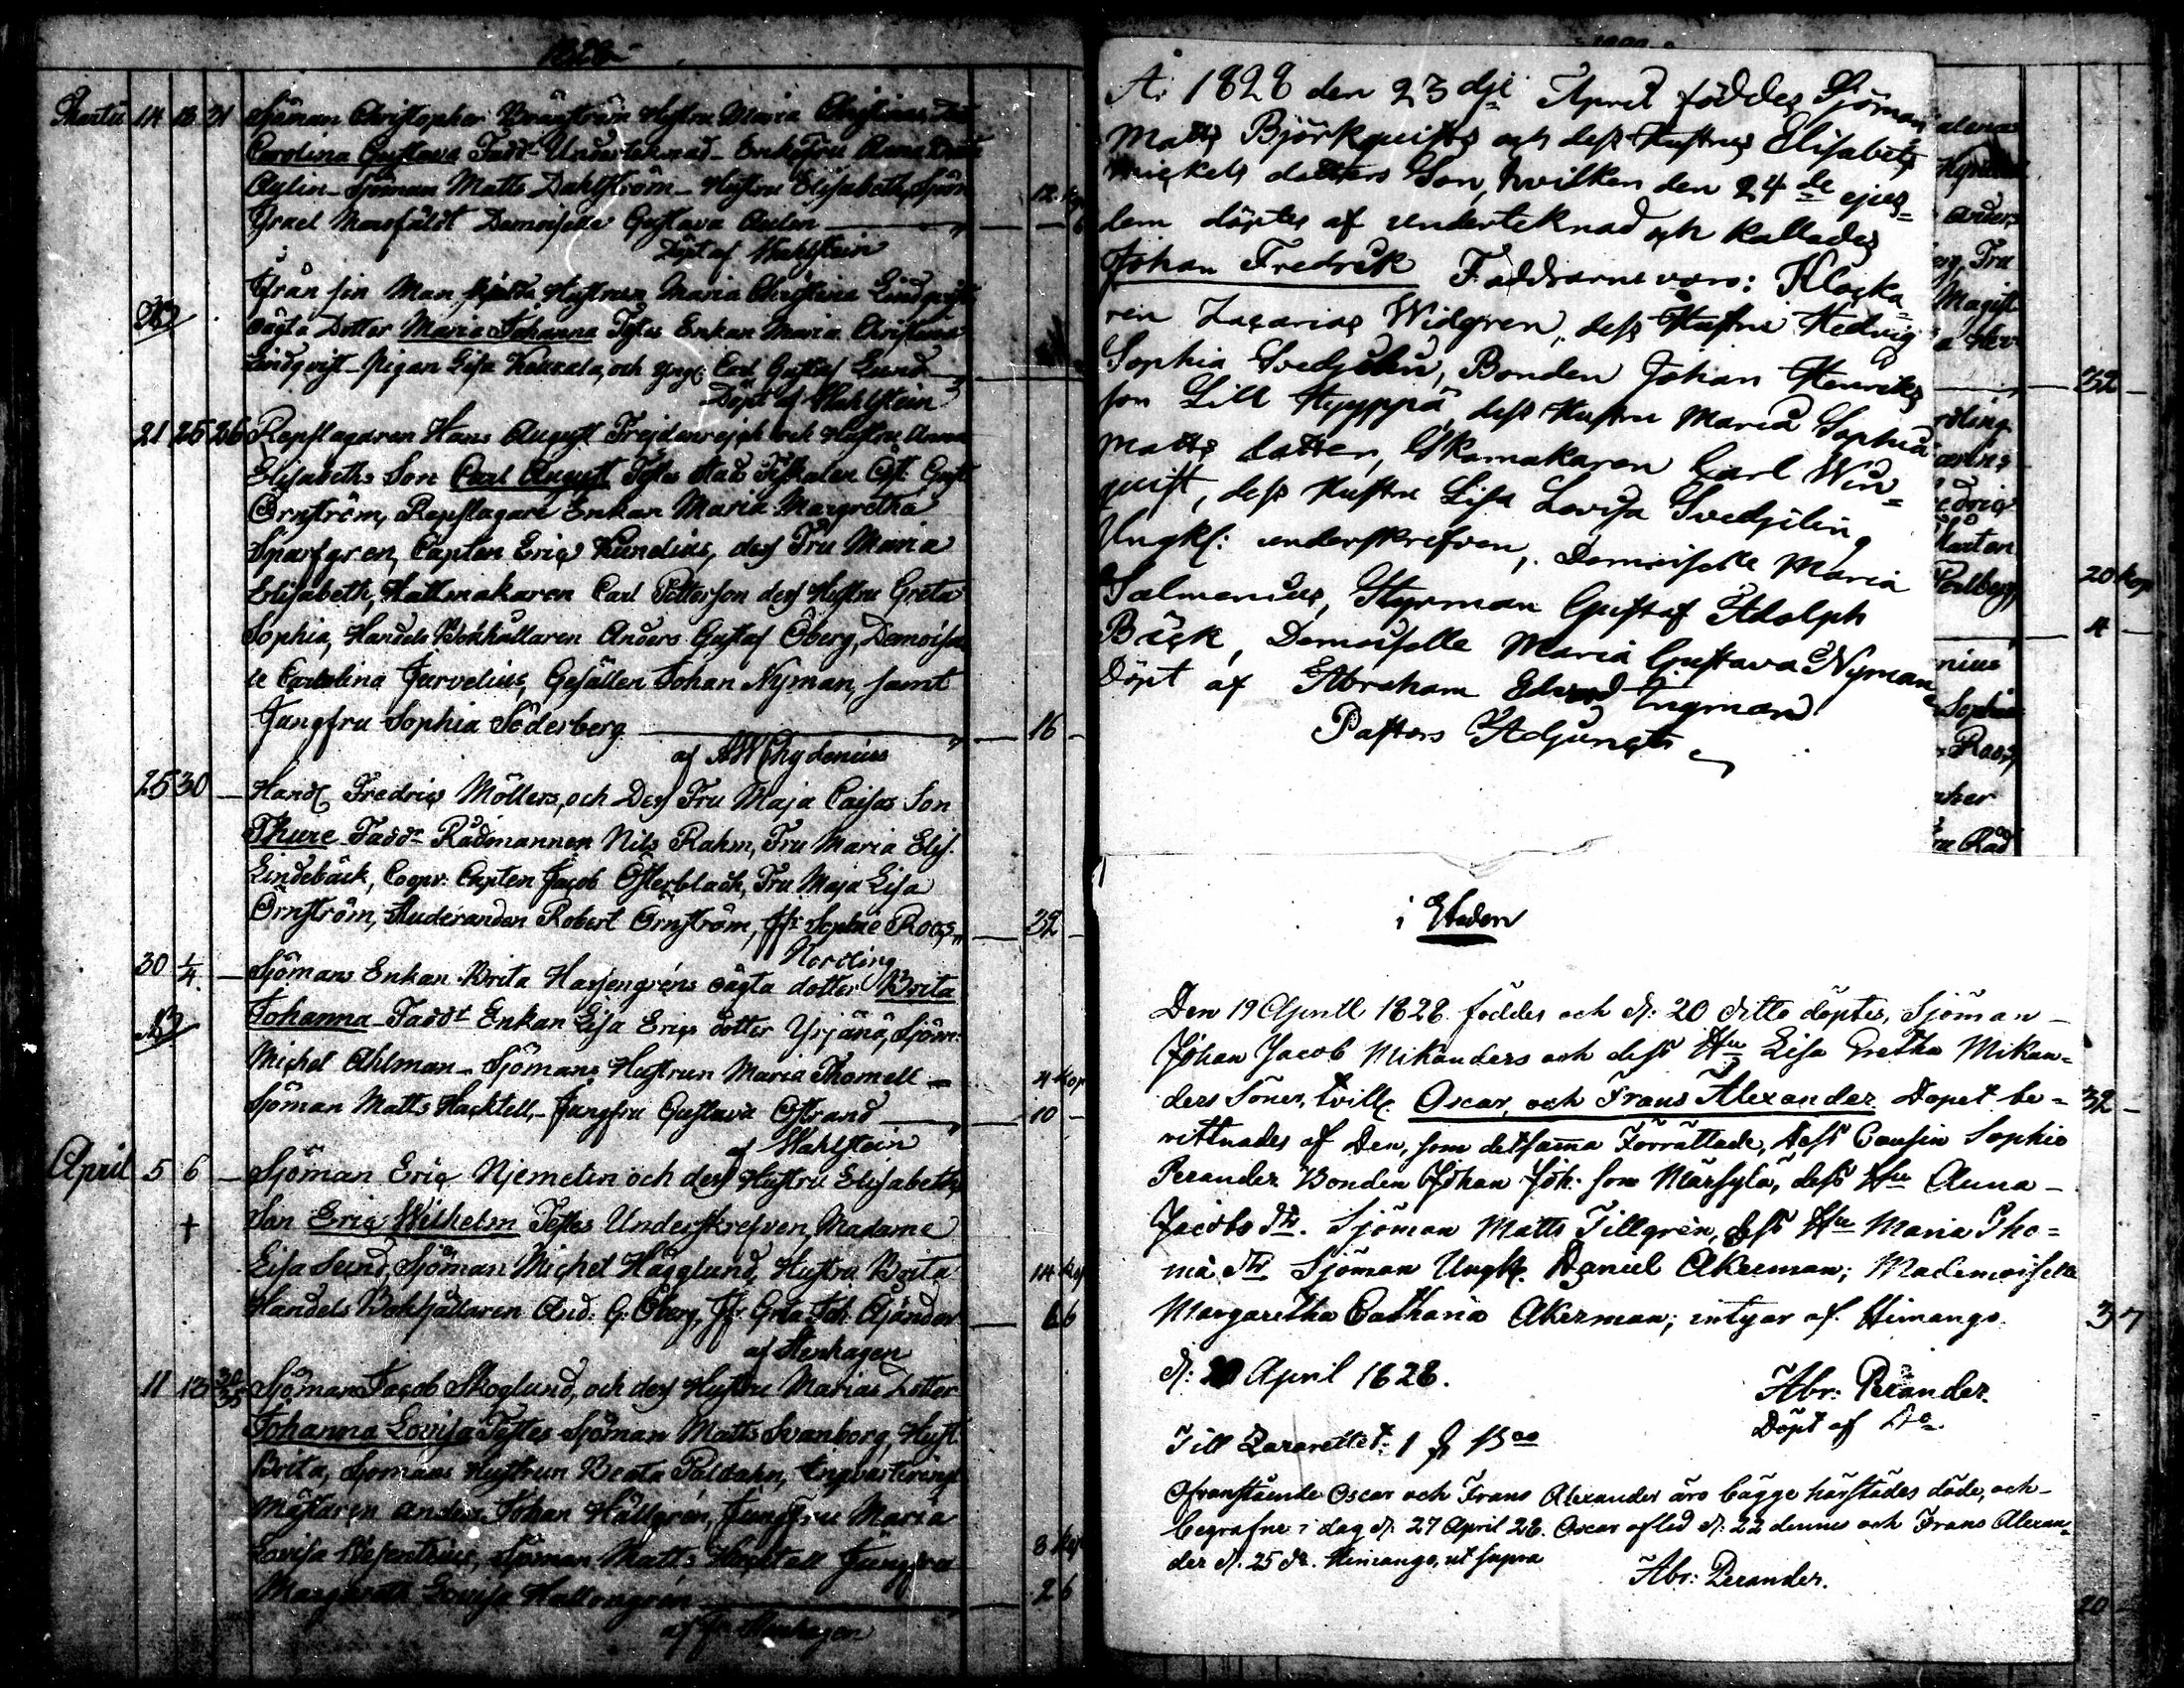 1828
Martii 14 18 31 Sjöman Christopher Brägström Hustru Maria Christinas
Carolina Gustava Fadd Undertecknad Enkefru Anna
Aylin Sjöman Matts Dahlström Hustru Elisabeth, Sjöm 12 Kop
Israel Mansfäldt Demoiselle Gustava Aulin
Döpt af Wahlstein
Från sin Man skjilda Hustrun Maria Christina Lindqvist
oägta Dotter Maria Johanna Testes Enkan Maria Christina
Lindqvist Pigan Lisa och Yngl: Carl Gustaf Lund
Döpt af Wahlstein
21 25 26 Repslagaren Hans August Frejdenrejch och Hustru Anna
Elisabeths Son Carl August Testes Stads Fiskalen Gust
Örnström, Repslagare Enkan Maria Margretha
Sparfgren, Capten Eric Kunelius, dess Fru Maria
Elisabeth, Hattmakaren Carl Petterson dess Hustru Greta
Sophia, Handels Bokhållaren Anders Gustaf Öberg, Demoisel
le Carolina Jurvelius, Gesällen Johan Nyman samt
Jungfru Sophia Söderberg 16 –
af AWChydenius
25 30 – Handl Fredric Möllers, och Dess Fru Maja Caisas Son
Thure Faddr Rådmannen Nils Rahm, Fru Maria Elis.
Lindebäck, Coopv. Capten Jacob Österblad, Fru Maja Lisa
Örnström, Studeranden Robert Örnström, Jfr Sophie Roos 32 –
Nording
30 1/4 – Sjömans Enkan Brita Hassengréns oägta dotter Brita
Johanna Faddr Enkan Lisa Erics dotter Yrjänä, Sjöm:
Michel Ahlman Sjömans Hustrun Maria Thomell 4 Kop
Sjöman Matts Hacktell, Jungfru Gustava Östrand 10 –
af Wahlstein
April 5 6 – Sjöman Eric Njemelin och dess Hustru Elisabeths
† Son Eric Wilhelm Testes Underskrefven, Madame
Lisa Lund, Sjöman Michel Hägglund, Hustru Brita 14 Kop
Handels Bokhållaren And: G: Öberg, Jfr Greta Joh. Ajander 66
af Stenhagen
11 13 Sjöman Jacob Skoglund, och dess Hustru Marias dotter
Johanna Lovisa Testes Sjöman Matts Svanborg, Hust.
Brita, Sjömans Hustrun Beata Paldahn, Inqvarterings
mästaren Anders Johan Hällgrén, Jungfru Maria
Lovisa Sjöman Matts Hacktell Jungfru 8 Kop
Margareta Lovisa Hallongrén 26
af Stenhagen
År 1828 den 23 dje April föddes Sjöman
Matts Björkquists och dess Hustrus Elisabets
Mickels dotters Son, hvilken den 24de ejus=
dem döptes af undertecknad och kallades
Johan Fredrik Faddrarne voro: Klocka=
ren Zacarias Widgren, dess Hustru Hedvig
Sophia Svedjelin, Bonden Johan Henriks
son Lill Hyyppä, dess Hustru Maria Sophia
Matts dotter, Skomakaren Carl Win=
quist, dess Hustru Lisa Lovisa Svedjelin,
Ungkl: underskrefven, Demoiselle Maria
Salmenius, Styrman Gustaf Adolph
Bäck, Demoiselle Maria Gustava Nyman
Döpt af Abraham Edvard Ingman
Pastors Adjunct
32 –
20 Kop
4 –
i Staden
Den 19 Aprill 1828 föddes och d: 20 ditto döptes, Sjöman
Johan Jacob Mikanders och dess Hu Lisa Gretha Mikan=
ders Söner, tvill: Oscar, och Frans Alexander Dopet be= 32 –
vittnades af Den, som detsamma Förrättade, dess Cousin Sophie
Perander Bonden Johan Joh. son Märsylä, dess Hu Anna
Jacobs dr. Sjöman Matts Tillgrén, dess Hu Maria Tho=
mä dr Sjöman Ungk. Daniel Akerman; Mademoiselle
Margaretha Catharia Akerman; intygar af Himango 37
d: 20 April 1828.
Abr: Perander.
Döpt af Do.
Till Lazarettet: 1
Ofvanstående Oscar och Frans Alexander äro bägge härstädes döde, och
begrafne i dag d: 27 April 28. Oscar afled d: 22 dennes och Frans Alexan=
der d. 25 do. Himango, ut supra
Abr: Perander.
20